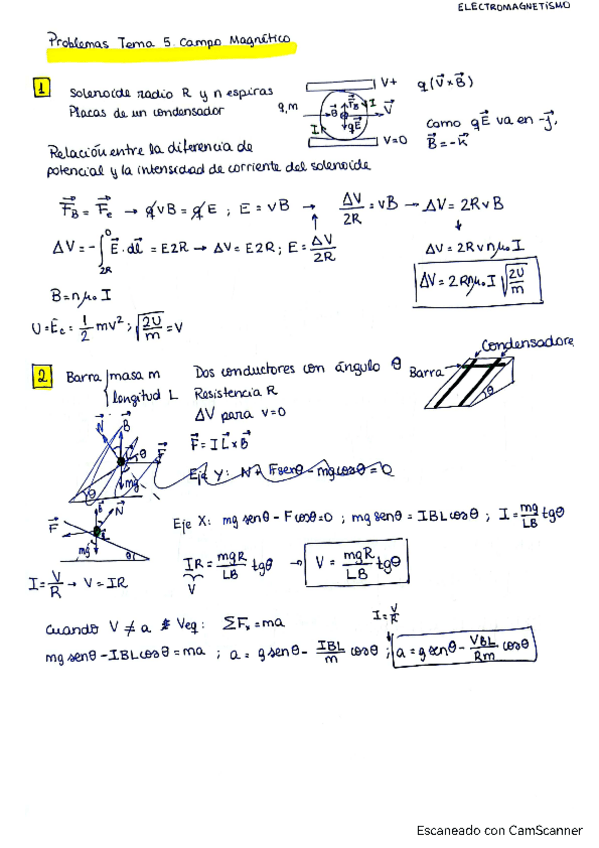 ELECTROMAGNETISMO
Problemas Tema 5. Campo Magnético
1 Solenoide radio R y n espiras
Placas de un condensador
q,m
V+
V=0
q(V⃗×B⃗)
Como qE⃗ va en -j⃗,
B⃗=-K⃗
Relación entre la diferencia de
potencial y la intensidad de corriente del solenoide
F⃗_B = F⃗_e → qvB = qE ; E = vB → ΔV/2R = vB → ΔV = 2RvB
ΔV = -∫_{2R}^{0} E⃗·dl⃗ = E2R → ΔV = E2R ; E = ΔV/2R
ΔV = 2Rvnμ₀I
B = nμ₀I
ΔV = 2Rnμ₀I √(2U/m)
U = Ec = 1/2 mv² ; √(2U/m) = v
2 Barra {masa m
longitud L
Dos conductores con ángulo θ
Resistencia R
ΔV para v=0
Barra
Condensadore
θ
F⃗ = I L⃗×B⃗
Eje Y: N - Fsenθ - mgcosθ = 0
N⃗ B⃗ θ F⃗ mg⃗ θ
Eje X: mg senθ - Fcosθ = 0 ; mg senθ = IBL cosθ ; I = mg/LB tgθ
F⃗ B⃗ N⃗ mg⃗ θ
IR = mgR/LB tgθ → V = mgR/LB tgθ
V
I = V/R → V = IR
Cuando V ≠ a Veq: ΣFx = ma
I = V/R
mg senθ - IBL cosθ = ma ; a = g senθ - IBL/m cosθ ; a = g senθ - VBL/Rm cosθ
Escaneado con CamScanner